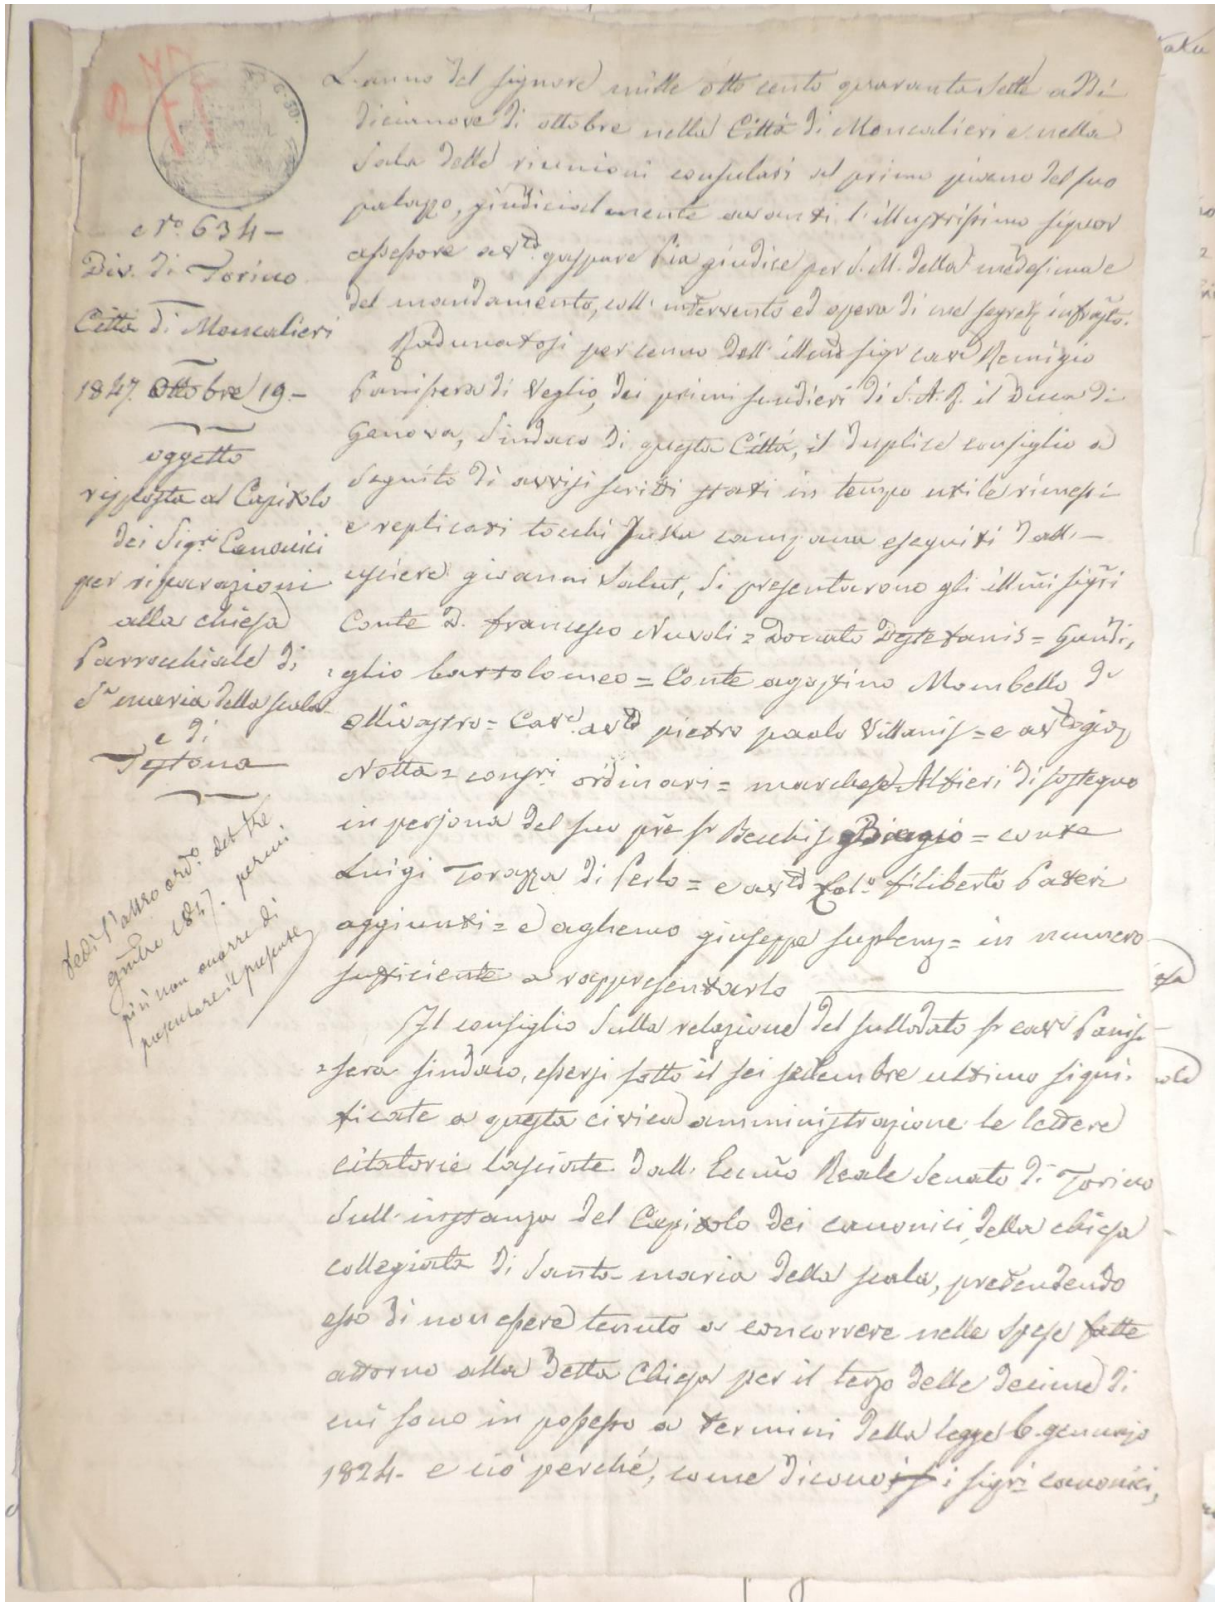 C. 50.
N.° 634 -
Div. di Torino
Città di Moncalieri
1847. Ottobre 19 -
oggetto
risposta al Capitolo
dei Sig.ri Canonici
per riparazioni
alla chiesa
Parrochiale di
S.a maria della scala
e di
Testona
Vedi l'altro ord.o del
1847. per cui
più non occorre di
presentare il presente
L'anno del signore mille otto cento quaranta sette addì
diecinove di ottobre nella Città di Moncalieri e nella
Sala delle riunioni consulari al primo piano del suo
palazzo, giudicialmente avanti l'illustrissimo signor
assessore avv.to gaspare Pia giudice per S. M. della medesima e
del mandamento, coll'intervento ed opera di me segret.o infrascto.
Radunatosi per cenno dell'illmo sigr cav.e Remigio
Panissera di Veglio, dei primi scudieri di S. A. R. il Duca di
Genova, Sindaco di questa Città, il duplice consiglio a
seguito di avvisi scritti stati in tempo utile rimessi
e replicati tocchi della campana eseguiti dall'-
usciere giovanni Salut, si presentarono gli illmi sigri
Conte D. francesco Nuvoli = Donato Destefanis = Gaudi,
=glio bartolomeo = Conte agostino Mombello di
Ollivastro = Cav.e avv.to pietro paolo Villanis = e avv.to gio.
Notta = consri ordinari = marchese Alfieri di sostegno
in persona del suo pre sr Becchis Biagio = conte
Luigi Torazza di Perlo = e avv.to filiberto Pateri
aggiunti = e aghemo giuseppe supplenz = in numero
sufficiente a rappresentarlo
Il consiglio sulla relazione del sullodato sr cav.e Panis-
=sera sindaco, essersi sotto il sei settembre ultimo signi-
ficate a questa civica amministrazione le lettere
citatorie lasciate dall'Eccmo Reale Senato di Torino
sull'instanza del Capitolo dei canonici della chiesa
collegiata di Santa maria della scala, pretendendo
esso di non essere tenuto a concorrere nelle spese fatte
attorno alla detta Chiesa per il terzo delle decime di
cui sono in possesso a termini della legge 6. gennajo
1824 - e ciò perché, come dicono i sigri canonici,